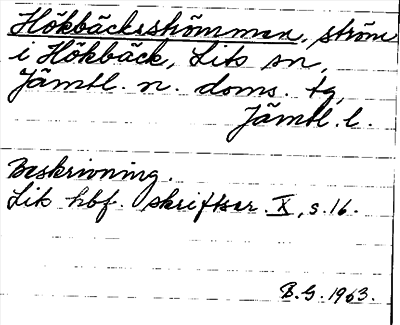 Hökbäcksströmmen, ström
i Hökbäck, Lits sn,
Jämtl. n. doms. tg,
Jämtl. l.
Beskrivning.
Lits hbf. skriftser. X, s. 16.
B.G. 1963.